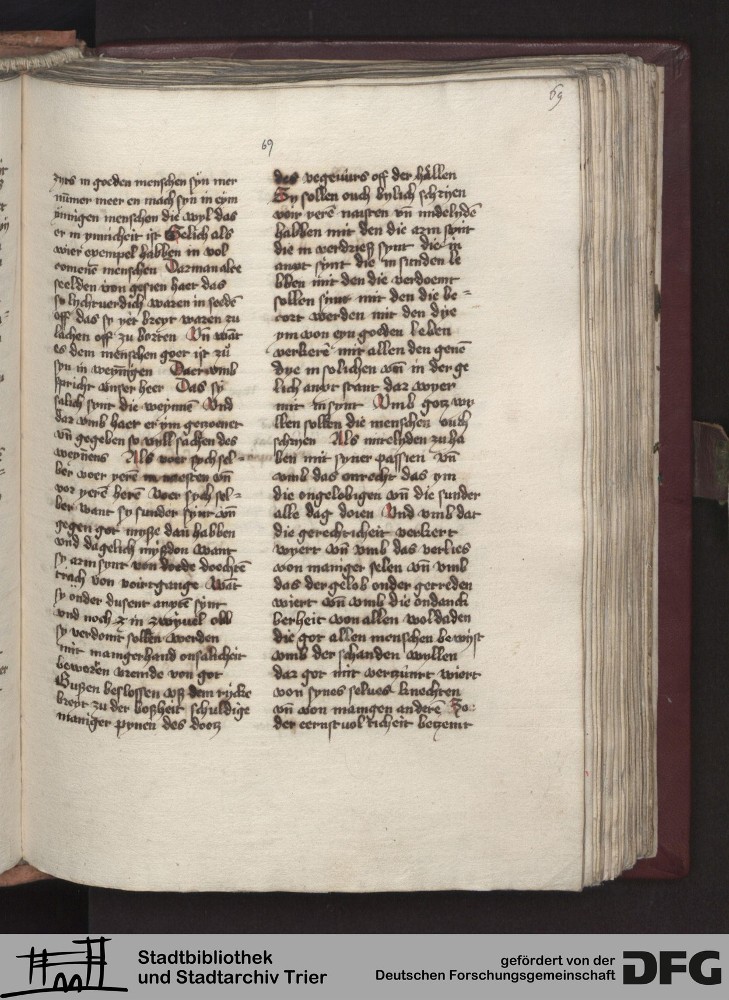 69
69
in goeden menschen syn mer
nūmer meer en mach syn in eym
ynnigen menschen die wyl das
er in ynnicheit ist Gelich als
wier exempel habben in vol
comenē menschen Darman alle
seelden von gesien haer das
so lychtuerdich waren in seedē
off das sy yet breyt waren zu
lachen off zu borten Vn̄ want
es dem menschen goet ist zu
syn in weynnigen Daer vmb
spricht vnser heer Das sy
salich synt die weynnē Vnd
dar vmb haet er ym genoemet
vn̄ gegeben so wyll sachen des
weynens Als voer sych sel-
ber voer yere in naesten vn̄
vor yere herē Voer sych sel-
ber want sy sunder synt vn̄
gegen got mysse dan habben
vnd dagelich myssdon want
sy arm synt von doede doechtē
trach von voirtgange Want
sy onder dusent synt
vnd noch in zwyuel obb
sy verdomt sollen werden
mit manigerhand onsalicheit
beworen vremde von got
Bussen beslossen vss dem rycke
breyt zu der bossheit schuldige
maniger pynen des dootz
des vegeuiurs off der hallen
Sy sollen ouch bylich schryen
voir yere naisten vn̄ midelydē
habben mit den die arm synt
die in verdriess synt die in
anxt synt die in sunden le
bben mit den die verdoemt
sollen sint mit den die be-
cort werden mit den dye
ym von eyn goeden leben
verkerē mit allen den genē
dye in solichen vn̄ in der ge
lich anxt stant dar wyer
mit in synt Vmb gotz wy
llen sollen die menschen ouch
schryen Als mitelyden zu ha
ben mit syner passien Vn̄
vmb das onrecht das ym
die ongelobigen vn̄ die sunder
alle dag doien Vnd vmb dat
die gerechticheit verkert
wyert vn̄ vmb das verlies
von maniger selen vn̄ vmb
das der gelob onder getreden
wiert vn̄ vmb die ondancki
berheit von allen woldaden
die got allen menschen bewyst
vmb der schanden wyllen
dar got mit vervnirt wiert
von synes selues knechten
vn̄ von manigen anderē So
der eernstuolticheit betzemt
Stadtbibliothek
und Stadtarchiv Trier
gefördert von der
Deutschen Forschungsgemeinschaft
DFG